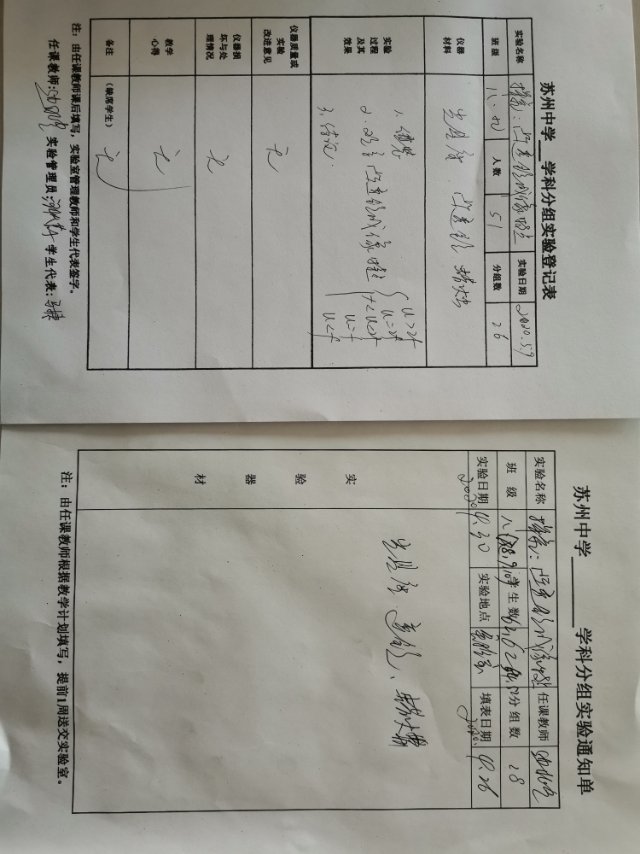 苏州中学___学科分组实验登记表
实验名称 探究:凸透镜成像规律 实验日期 2020.5.9
班级 八.(10) 人数 51 分组数 26
仪器材料 光具座 凸透镜 蜡烛
实验过程及其效果
1、猜想
2、
凸透镜成像规律
u>2f
u=2f
f<u<2f
u=f
u<f
3、结论.
仪器质量或改进意见 无
仪器损坏与处理情况 无
教学心得 无
备注 (缺席学生) 无
注:由任课教师课后填写,实验室管理教师和学生代表签字。
任课教师: 实验管理员: 学生代表:
苏州中学______学科分组实验通知单
实验名称 探究:凸透镜成像规律 任课教师
班级 学生数 分组数 28
实验日期 2020.4.30 实验地点 实验室 填表日期 2020.4.26
实验器材
光具座 透镜、蜡烛
注:由任课教师根据教学计划填写,提前1周送交实验室。